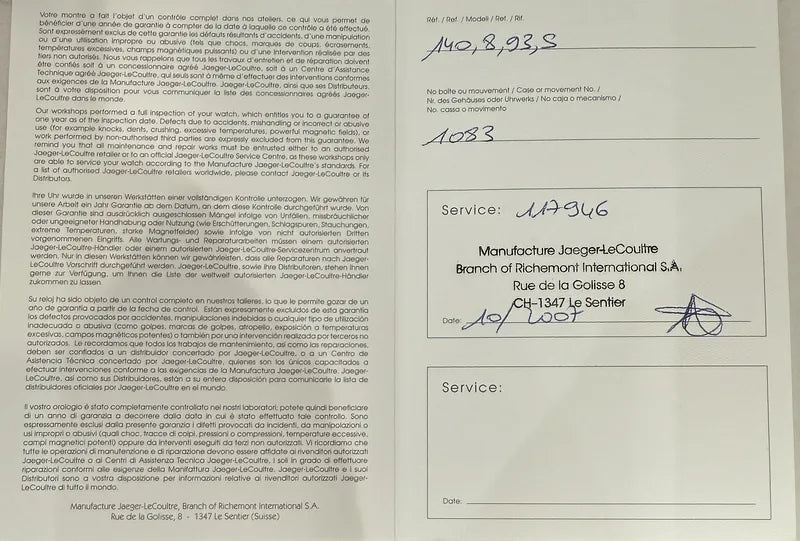 Votre montre a fait l'objet d'un contrôle complet dans nos ateliers, ce qui vous permet de
bénéficier d'une année de garantie à compter de la date à laquelle ce contrôle a été effectué.
Sont expressément exclus de cette garantie les défauts résultants d'accidents, d'une manipulation
ou d'une utilisation impropre ou abusive (tels que chocs, marques de coups, écrasements,
températures excessives, champs magnétiques puissants) ou d'une intervention réalisée par des
tiers non autorisés. Nous vous rappelons que tous les travaux d'entretien et de réparation doivent
être confiés soit à un concessionnaire agréé Jaeger-LeCoultre, soit à un Centre d'Assistance
Technique agréé Jaeger-LeCoultre, qui seuls sont à même d'effectuer des interventions conformes
aux exigences de la Manufacture Jaeger-LeCoultre. Jaeger-LeCoultre, ainsi que ses Distributeurs,
sont à votre disposition pour vous communiquer la liste des concessionnaires agréés Jaeger-
LeCoultre dans le monde.
Our workshops performed a full inspection of your watch, which entitles you to a guarantee of
one year as of the inspection date. Defects due to accidents, mishandling or incorrect or abusive
use (for example knocks, dents, crushing, excessive temperatures, powerful magnetic fields), or
work performed by non-authorised third parties are expressly excluded from this guarantee. We
remind you that all maintenance and repair works must be entrusted either to an authorised
Jaeger-LeCoultre retailer or to an official Jaeger-LeCoultre Service Centre, as these workshops only
are able to service your watch according to the Manufacture Jaeger-LeCoultre's standards. For
a list of authorised Jaeger-LeCoultre retailers worldwide, please contact Jaeger-LeCoultre or its
Distributors.
Ihre Uhr wurde in unseren Werkstätten einer vollständigen Kontrolle unterzogen. Wir gewähren für
unsere Arbeit ein Jahr Garantie ab dem Datum, an dem diese Kontrolle durchgeführt wurde. Von
dieser Garantie sind ausdrücklich ausgeschlossen Mängel infolge von Unfällen, missbräuchlicher
oder ungeeigneter Handhabung oder Nutzung (wie Erschütterungen, Schlagspuren, Stauchungen,
extreme Temperaturen, starke Magnetfelder) sowie infolge von nicht autorisierten Dritten
vorgenommenen Eingriffs. Alle Wartungs- und Reparaturarbeiten müssen einem autorisierten
Jaeger-LeCoultre-Händler oder einem autorisierten Jaeger-LeCoultre-Servicezentrum anvertraut
werden. Nur in diesen Werkstätten können wir gewährleisten, dass alle Reparaturen nach Jaeger-
LeCoultre Vorschrift durchgeführt werden. Jaeger-LeCoultre, sowie ihre Distributoren, stehen Ihnen
gerne zur Verfügung, um Ihnen die Liste der weltweit autorisierten Jaeger-LeCoultre-Händler
zukommen zu lassen.
Su reloj ha sido objeto de un control completo en nuestros talleres, lo que le permite gozar de un
ano de garantía a partir de la fecha de control. Están expresamente excluidos de esta garantía
los defectos provocados por accidentes, manipulaciones indebidas o cualquier tipo de utilización
inadecuada o abusiva (como golpes, marcas de golpes, atropello, exposición a temperaturas
excesivas, campos magnéticos potentes) o también por una intervención realizada por terceros no
autorizados. Le recordamos que todos los trabajos de mantenimiento, así como las reparaciones,
deben ser confiados a un distribuidor concertado por Jaeger-LeCoultre, o a un Centro de
Asistencia Técnica concertado por Jaeger-LeCoultre, quienes son los únicos capacitados a
efectuar intervenciones conforme a las exigencias de la Manufacture Jaeger-LeCoultre. Jaeger-
LeCoultre, así como sus Distribuidores, están a su entera disposición para comunicarle la lista de
distribuidores oficiales por Jaeger-LeCoultre en el mundo.
Il vostro orologio è stato completamente controllato nei nostri laboratori; potete quindi beneficiare
di un anno di garanzia a decorrere dalla data in cui è stato effettuato tale controllo. Sono
espressamente esclusi dalla presente garanzia i difetti provocati da incidenti, da manipolazioni o
usi impropri o abusivi (quali choc, tracce di colpi, pressioni o compressioni, temperature eccessive,
campi magnetici potenti) oppure da interventi eseguiti da terzi non autorizzati. Vi ricordiamo che
tutte le operazioni di manutenzione e di riparazione devono essere affidate ai rivenditori autorizzati
Jaeger-LeCoultre o ai Centri di Assistenza Tecnica Jaeger-LeCoultre, i soli in grado di effettuare
riparazioni conformi alle esigenze della Manifattura Jaeger-LeCoultre. Jaeger-LeCoultre e i suoi
Distributori sono a vostra disposizione per informazioni relative ai rivenditori autorizzati Jaeger-
LeCoultre di tutto il mondo.
Manufacture Jaeger-LeCoultre, Branch of Richemont International S.A.
Rue de la Golisse, 8 - 1347 Le Sentier (Suisse)
Réf. / Ref. / Modell / Ref. / Rif.
140,8,93,S
No boîte ou mouvement / Case or movement No. /
Nr. des Gehäuses oder Uhrwerks / No caja o mecanismo /
No. cassa o movimento
1083
Service: 117946
Manufacture Jaeger-LeCoultre
Branch of Richemont International S.A.
Rue de la Golisse 8
CH-1347 Le Sentier
Date: 10/2007
Service:
Date: